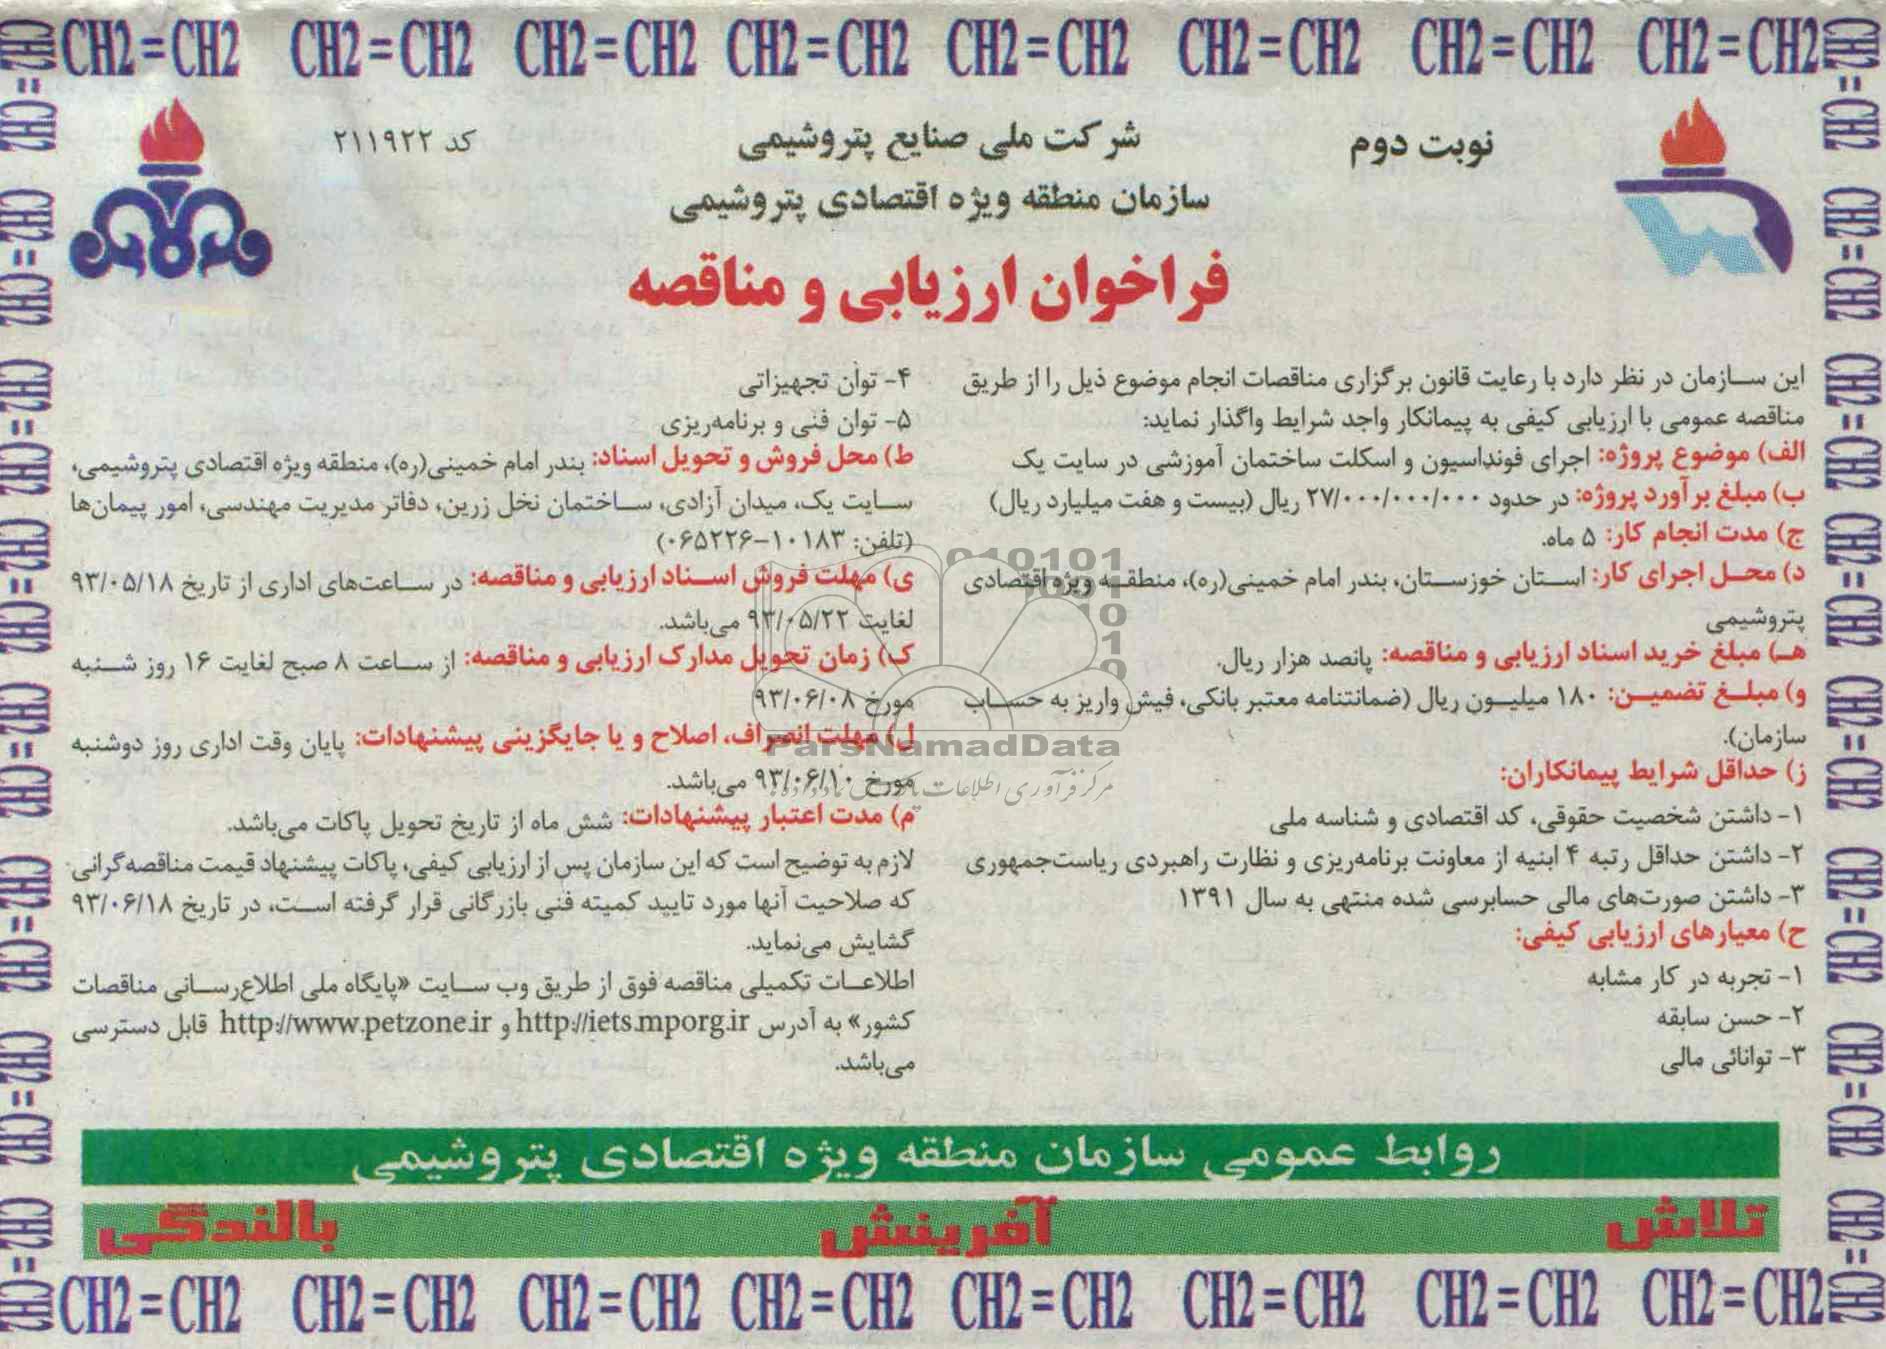 CH2=CH2 CH2=CH2 CH2=CH2 CH2=CH2 CH2=CH2 CH2=CH2 CH2=CH2 CH2=CH2
نوبت دوم
شرکت ملی صنایع پتروشیمی
کد ۲۱۱۹۲۲
سازمان منطقه ویژه اقتصادی پتروشیمی
فراخوان ارزیابی و مناقصه
این سازمان در نظر دارد با رعایت قانون برگزاری مناقصات انجام موضوع ذیل را از طریق
مناقصه عمومی با ارزیابی کیفی به پیمانکار واجد شرایط واگذار نماید:
الف) موضوع پروژه: اجرای فونداسیون و اسکلت ساختمان آموزشی در سایت یک
ب) مبلغ برآورد پروژه: در حدود ۲۷/۰۰۰/۰۰۰/۰۰۰ ریال (بیست و هفت میلیارد ریال)
ج) مدت انجام کار: ۵ ماه.
د) محل اجرای کار: استان خوزستان، بندر امام خمینی(ره)، منطقه ویژه اقتصادی
پتروشیمی
هـ) مبلغ خرید اسناد ارزیابی و مناقصه: پانصد هزار ریال.
و) مبلغ تضمین: ۱۸۰ میلیون ریال (ضمانتنامه معتبر بانکی، فیش واریز به حساب
سازمان).
ز) حداقل شرایط پیمانکاران:
۱- داشتن شخصیت حقوقی، کد اقتصادی و شناسه ملی
۲- داشتن حداقل رتبه ۴ ابنیه از معاونت برنامه‌ریزی و نظارت راهبردی ریاست‌جمهوری
۳- داشتن صورت‌های مالی حسابرسی شده منتهی به سال ۱۳۹۱
ح) معیارهای ارزیابی کیفی:
۱- تجربه در کار مشابه
۲- حسن سابقه
۳- توانائی مالی
۴- توان تجهیزاتی
۵- توان فنی و برنامه‌ریزی
ط) محل فروش و تحویل اسناد: بندر امام خمینی(ره)، منطقه ویژه اقتصادی پتروشیمی،
سایت یک، میدان آزادی، ساختمان نخل زرین، دفاتر مدیریت مهندسی، امور پیمان‌ها
(تلفن: ۱۰۱۸۳-۰۶۵۲۲۶)
ی) مهلت فروش اسناد ارزیابی و مناقصه: در ساعت‌های اداری از تاریخ ۹۳/۰۵/۱۸
لغایت ۹۳/۰۵/۲۲ می‌باشد.
ک) زمان تحویل مدارک ارزیابی و مناقصه: از ساعت ۸ صبح لغایت ۱۶ روز شنبه
مورخ ۹۳/۰۶/۰۸
ل) مهلت انصراف، اصلاح و یا جایگزینی پیشنهادات: پایان وقت اداری روز دوشنبه
مورخ ۹۳/۰۶/۱۰ می‌باشد.
م) مدت اعتبار پیشنهادات: شش ماه از تاریخ تحویل پاکات می‌باشد.
لازم به توضیح است که این سازمان پس از ارزیابی کیفی، پاکات پیشنهاد قیمت مناقصه‌گرانی
که صلاحیت آنها مورد تایید کمیته فنی بازرگانی قرار گرفته است، در تاریخ ۹۳/۰۶/۱۸
گشایش می‌نماید.
اطلاعات تکمیلی مناقصه فوق از طریق وب سایت «پایگاه ملی اطلاع‌رسانی مناقصات
کشور» به آدرس http://iets.mporg.ir و http://www.petzone.ir قابل دسترسی
می‌باشد.
ParsNamadData
روابط عمومی سازمان منطقه ویژه اقتصادی پتروشیمی
تلاش آفرینش بالندگی
CH2=CH2 CH2=CH2 CH2=CH2 CH2=CH2 CH2=CH2 CH2=CH2 CH2=CH2 CH2=CH2